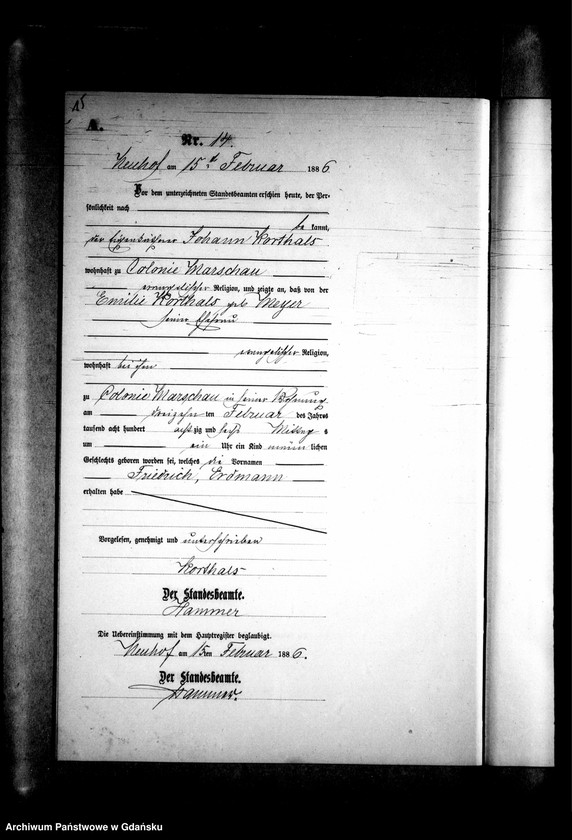 15
A.
Nr. 14.
Neuhof am 15t. Februar 1886.
Vor dem unterzeichneten Standesbeamten erschien heute, der Per-
sönlichkeit nach
be kannt,
der Johann Korthals
wohnhaft zu Colonie Marschau
evangelischer Religion, und zeigte an, daß von der
Emilie Korthals geb. Meyer
seiner Ehefrau
evangelischer Religion,
wohnhaft bei ihm
zu Colonie Marschau in seiner Wohnung
am dreizehn ten Februar des Jahres
tausend acht hundert acht zig und sechs Mittag s
um ein Uhr ein Kind männ lichen
Geschlechts geboren worden sei, welches die Vornamen
Friedrich, Erdmann
erhalten habe
Vorgelesen, genehmigt und unterschrieben
Korthals
Der Standesbeamte.
Hammer
Die Uebereinstimmung mit dem Hauptregister beglaubigt.
Neuhof am 15ten Februar 1886.
Der Standesbeamte.
Hammer.
Archiwum Państwowe w Gdańsku